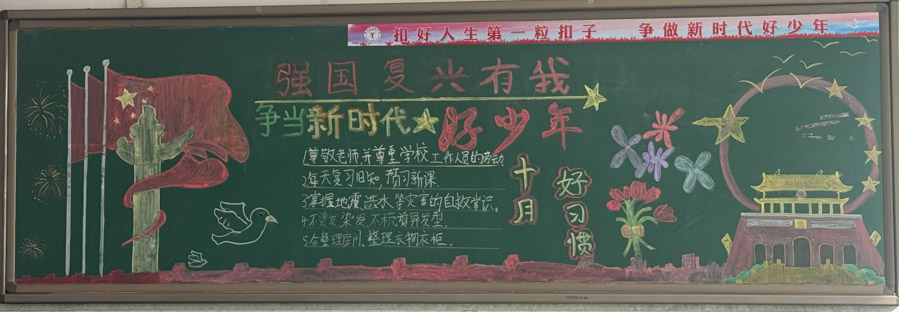 扣好人生第一粒扣子 争做新时代好少年
强国复兴有我
争当新时代好少年
1尊敬老师,并尊重学校工作人员的劳动
2每天复习旧知,预习新课.
3掌握地震洪水等灾害的自救常识.
4不烫发染发不梳前异发型.
整理衣物衣柜.
十月
好习惯